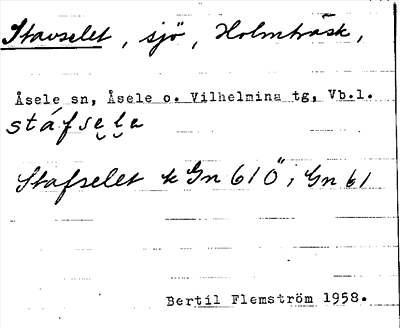 Stavselet, sjö, Holmträsk,
Åsele sn, Åsele o. Vilhelmina tg, Vb.l.
stáfse̮l̮a
Stafselet k Gn 61Ö; Gn 61
Bertil Flemström 1958.